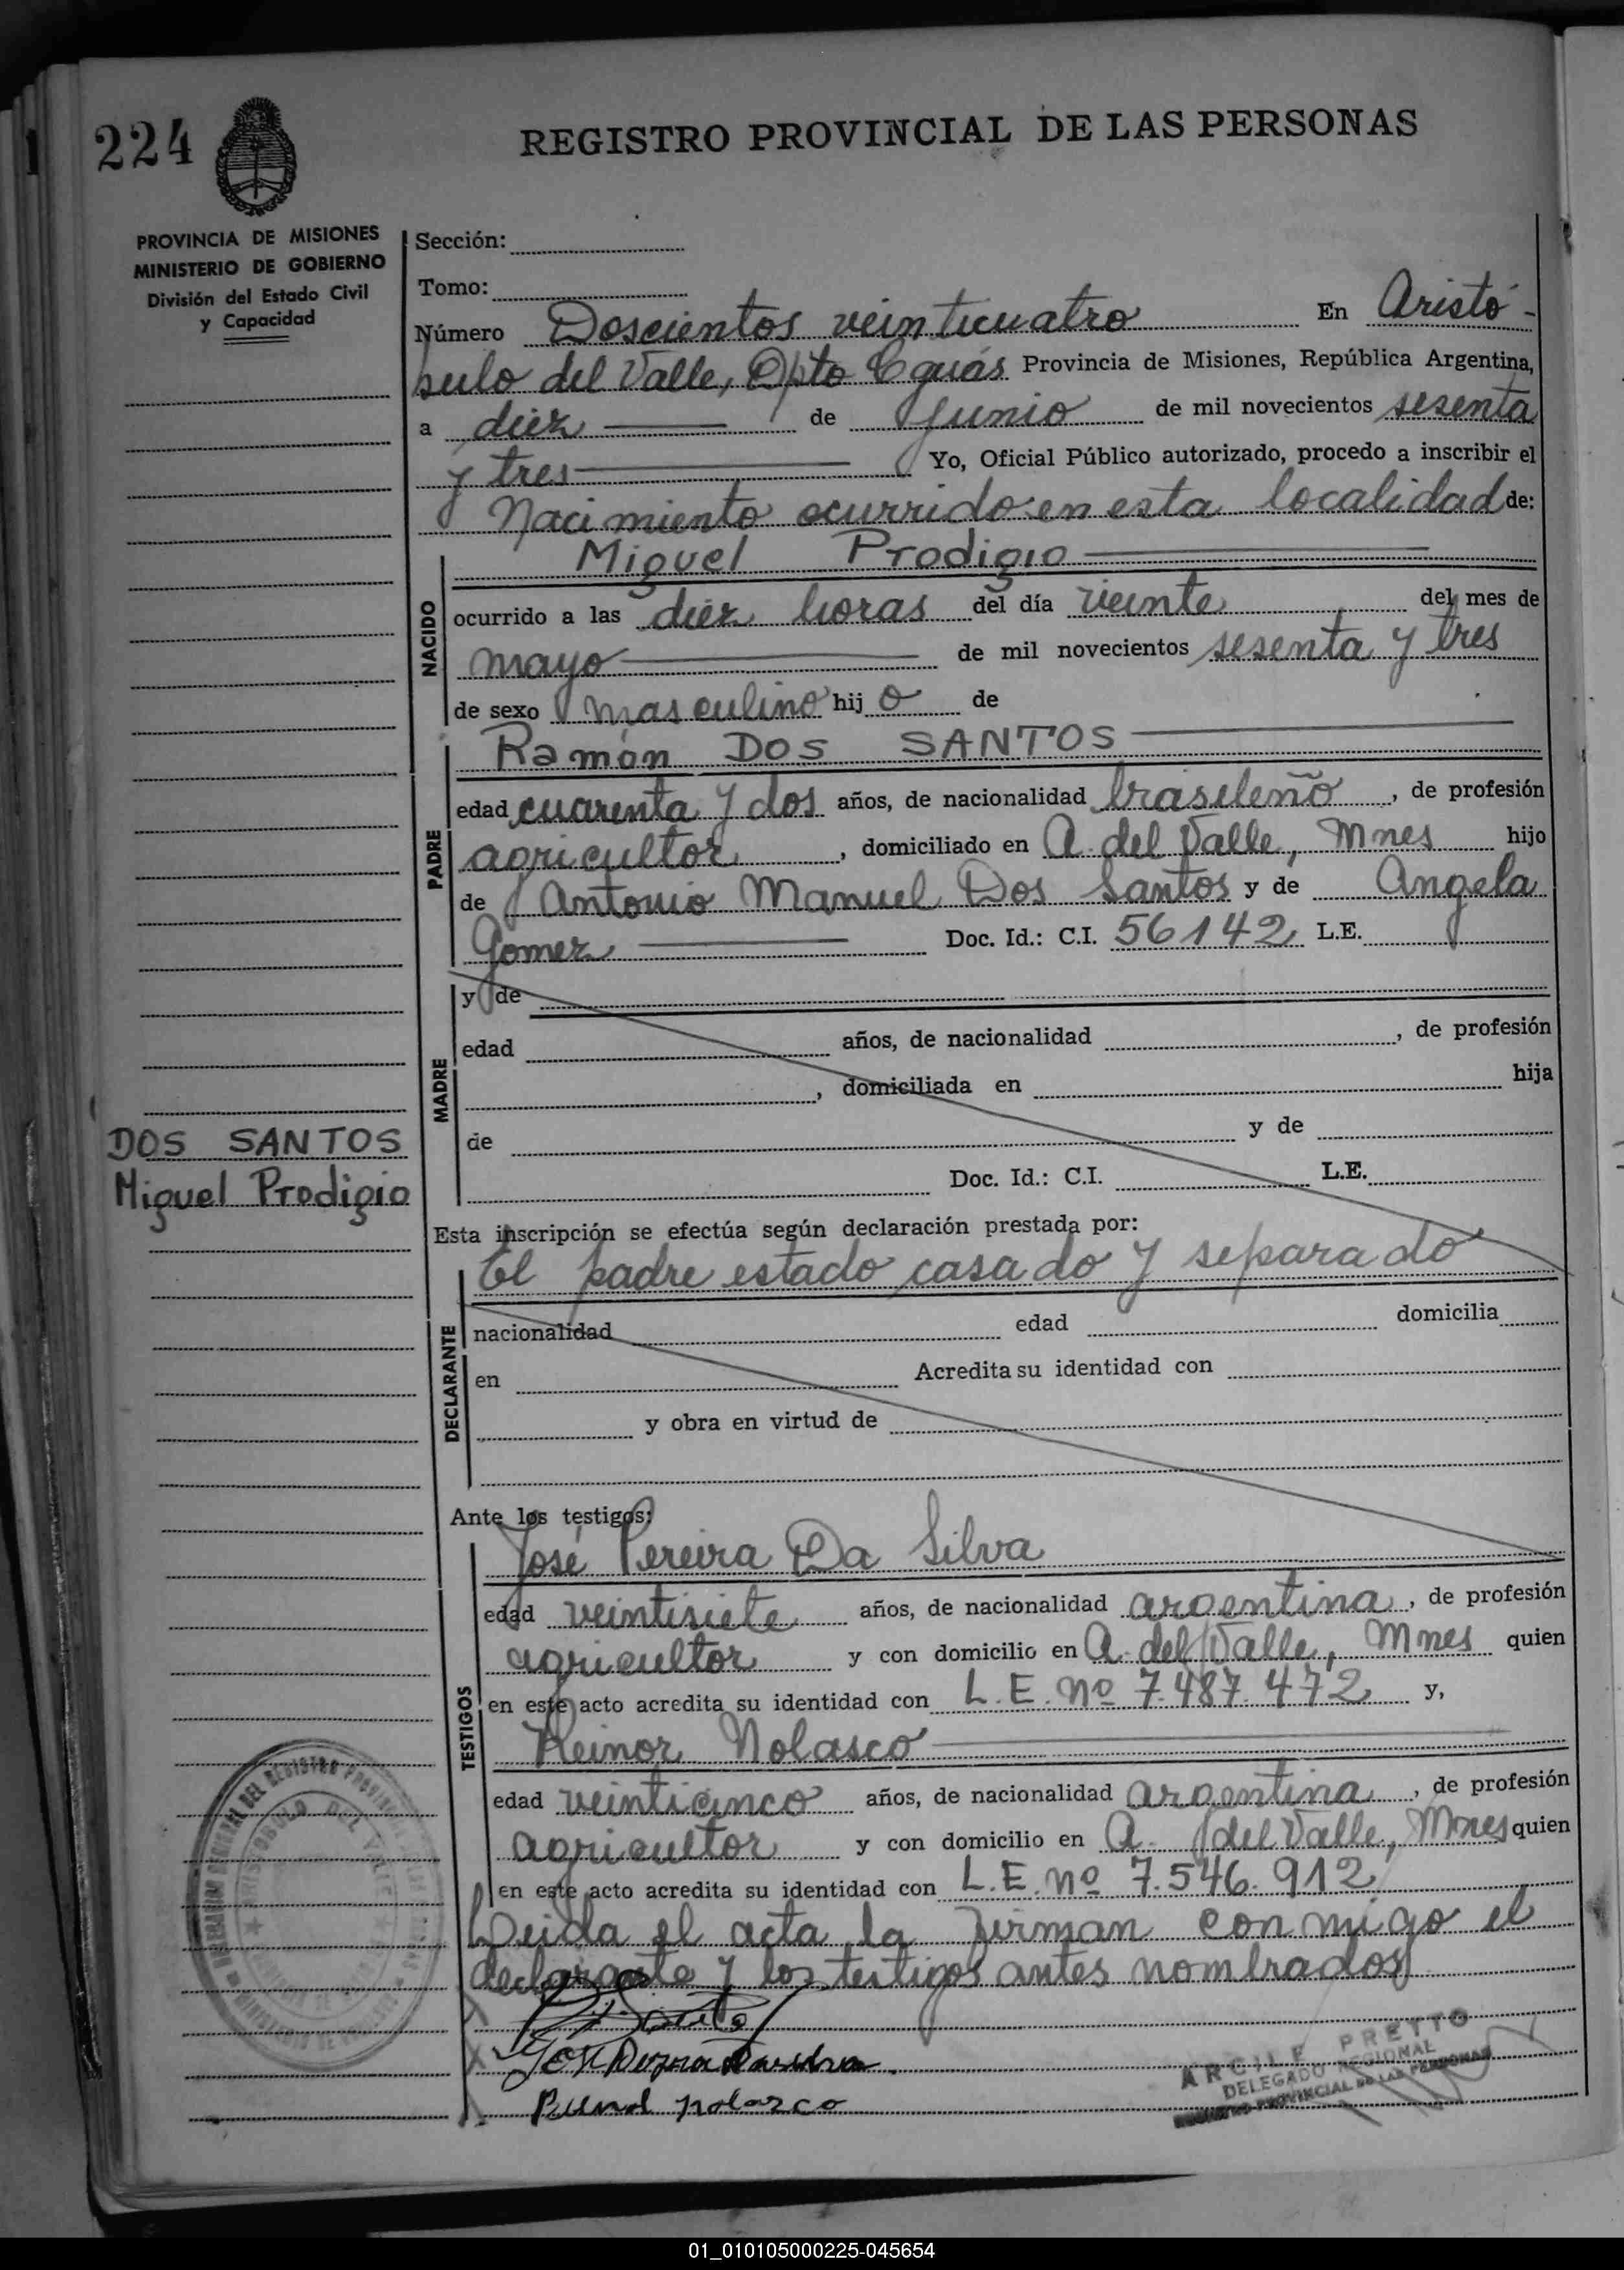 224
REGISTRO PROVINCIAL DE LAS PERSONAS
PROVINCIA DE MISIONES
MINISTERIO DE GOBIERNO
División del Estado Civil
y Capacidad
Sección:
Tomo:
Número Doscientos veinticuatro En Aristó-
bulo del Valle, Dpto Cguás Provincia de Misiones, República Argentina,
a diez de Junio de mil novecientos sesenta
y tres Yo, Oficial Público autorizado, procedo a inscribir el
Nacimiento ocurrido en esta localidad de:
NACIDO
Miguel Prodigio
ocurrido a las diez horas del día veinte del mes de
mayo de mil novecientos sesenta y tres
de sexo masculino hij o de
PADRE
Ramón DOS SANTOS
edad cuarenta y dos años, de nacionalidad brasileño, de profesión
agricultor, domiciliado en A. del Valle, Mnes hijo
de Antonio Manuel Dos Santos y de Angela
Gomez Doc. Id.: C.I. 56142 L.E.
MADRE
y de
edad años, de nacionalidad , de profesión
, domiciliada en hija
de y de
Doc. Id.: C.I. L.E.
DOS SANTOS
Miguel Prodigio
Esta inscripción se efectúa según declaración prestada por:
El padre estado casado y separado
DECLARANTE
nacionalidad edad domicilia
en Acredita su identidad con
y obra en virtud de
Ante los testigos:
TESTIGOS
José Pereira Da Silva
edad veintisiete años, de nacionalidad argentina, de profesión
agricultor y con domicilio en A. del Valle, Mnes quien
en este acto acredita su identidad con L.E. Nº 7.487.472 y,
Reinor Nolasco
edad veinticinco años, de nacionalidad argentina, de profesión
agricultor y con domicilio en A. del Valle, Mnes quien
en este acto acredita su identidad con L.E. Nº 7.546.912
Leida el acta la firman conmigo el
declarante y los testigos antes nombrados
nolasco
ARCILE PRETTO
DELEGADO REGIONAL
REGISTRO PROVINCIAL DE LAS PERSONAS
01_010105000225-045654